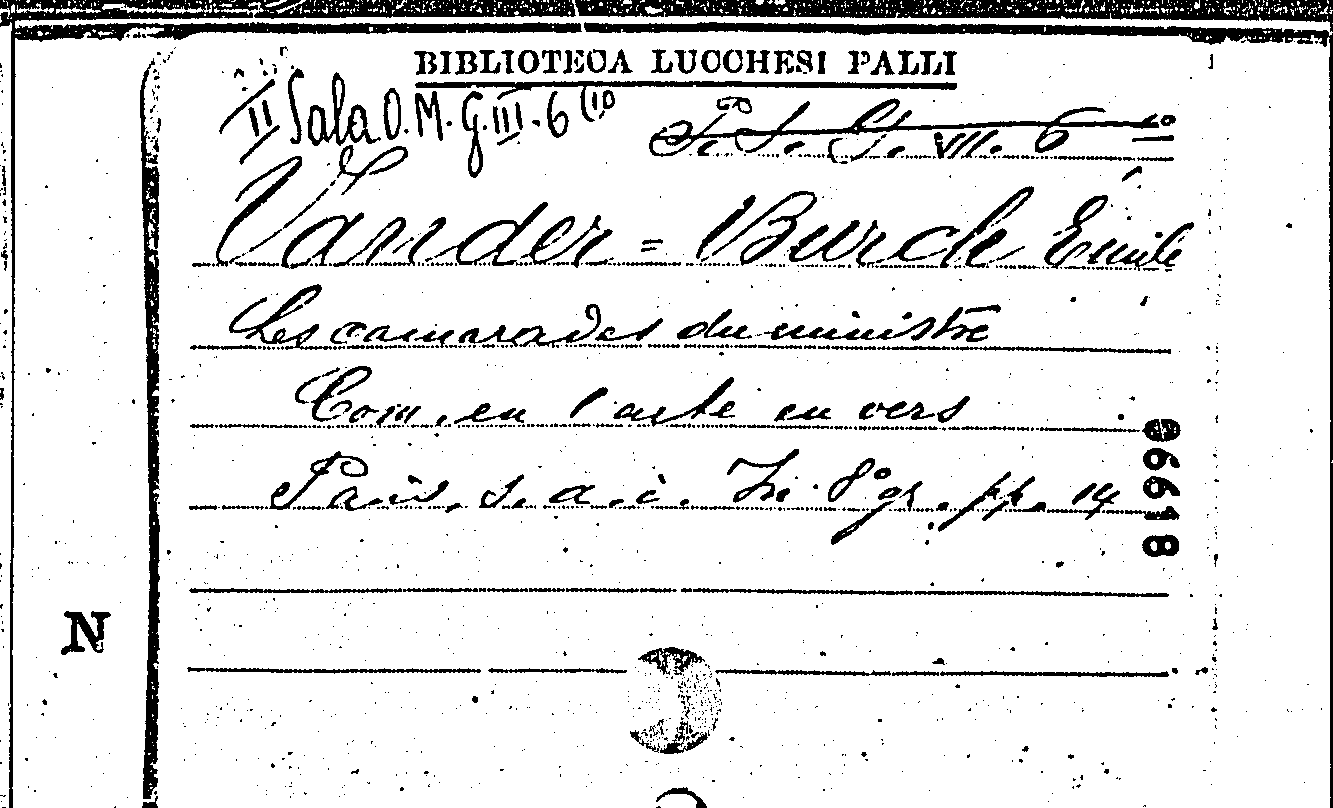 BIBLIOTECA LUCCHESI PALLI
II Sala O. M. G. III. 6 (10
S. G. VII. 6 10
Vander=Burch Emile
Les camarades du ministre
Com. en 1 acte en vers
Paris, s. a. i. In 8º gr. pp. 14
N